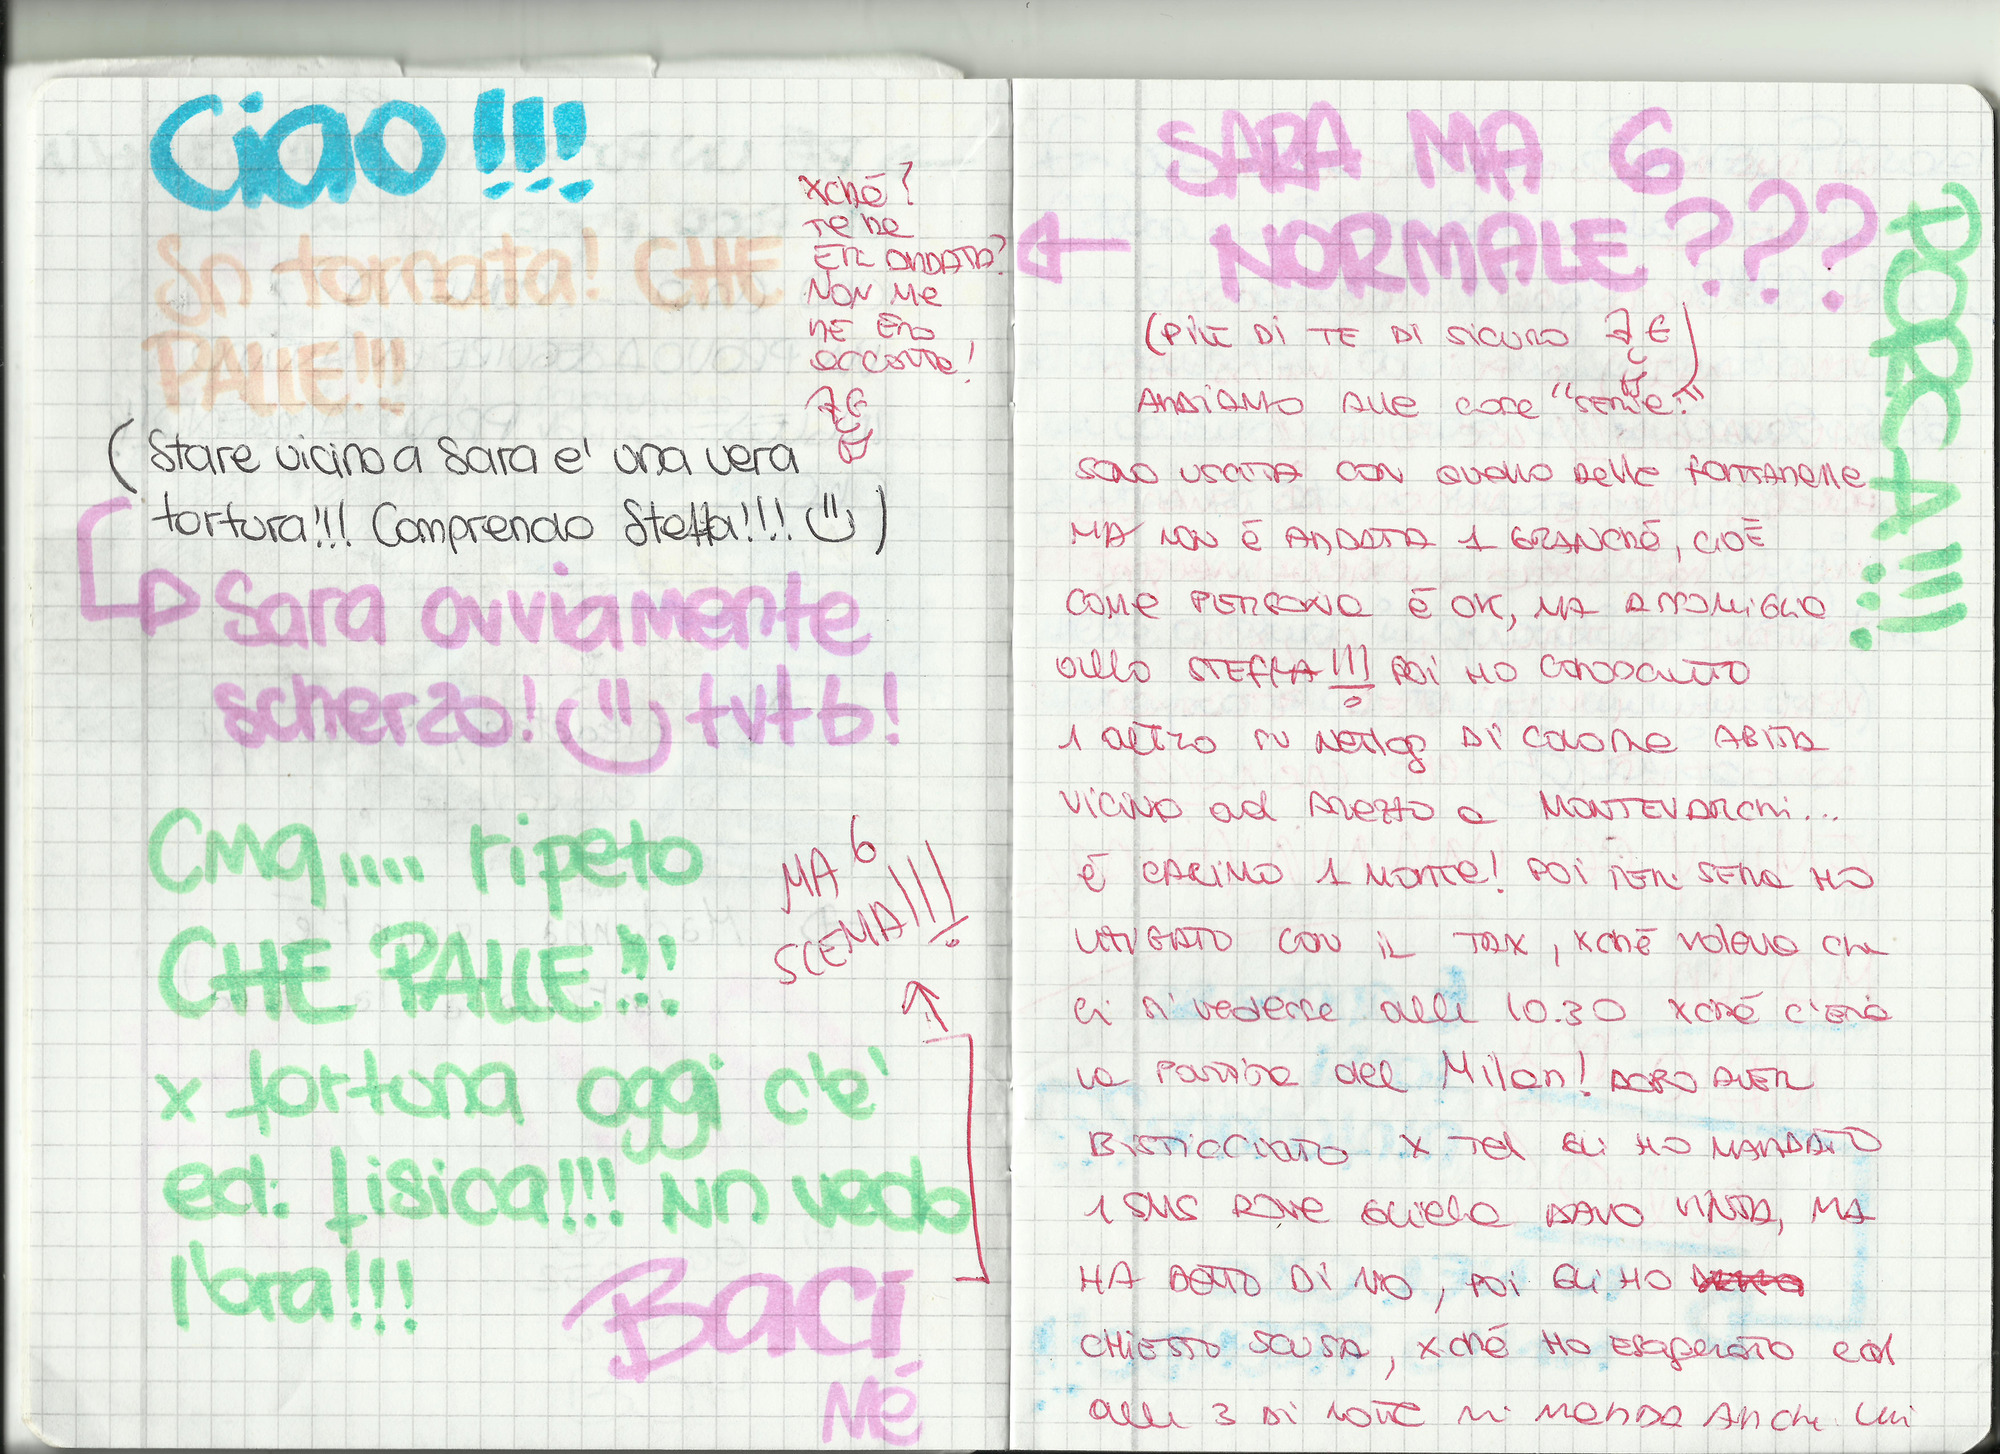 Ciao!!!
Sn tornata! CHE
PALLE!!!
xché?
te ne
eri andata?
non me
ne ero
accorta!
(Stare vicino a Sara e' una vera
tortura!!! Comprendo Steffa!!!)
Sara ovviamente
scherzo! tvtb!
Cmq..... ripeto
CHE PALLE!!!
MA 6
SCEMA!!!
x fortuna oggi c'è
ed. fisica!!! Nn vedo
l'ora!!!
Baci
Né
SARA MA 6
NORMALE???
PORCA!!!
(più di te di sicuro
Andiamo alle cose "serie."
sono uscita con quello delle fontanelle
MA non è andata 1 granché, cioè
come persona è ok, ma assomiglia
allo STEFFA!!! poi ho conosciuto
1 altro su netlog di cognome abita
vicino ad Arezzo a MONTEVARCHI...
è carino 1 monte! Poi ieri sera ho
litigato con il TAX, xché voleva che
ci si vedesse alle 10.30 xché c'era
la partita del Milan! Dopo aver
bisticciato x tel gli ho mandato
1 SMS dove gliela davo vinta, ma
ha detto di no, poi gli ho
chiesto scusa, xché ho esagerato ed
alle 3 di notte mi manda anche lui